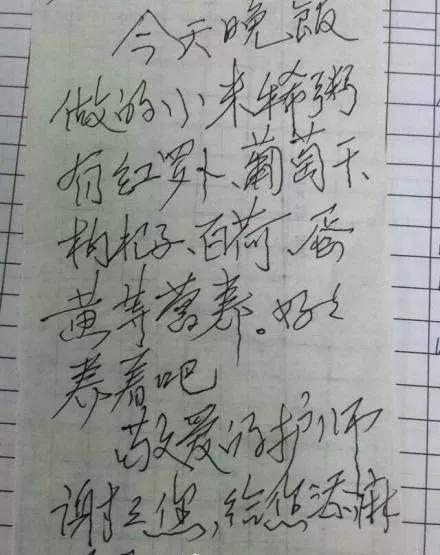 今天晚饭
做的小米稀粥
有红罗卜、葡萄干、
枸杞子、百荷、蛋
黄等营养。好好
养着吧
敬爱的护师
谢谢您,给您添麻